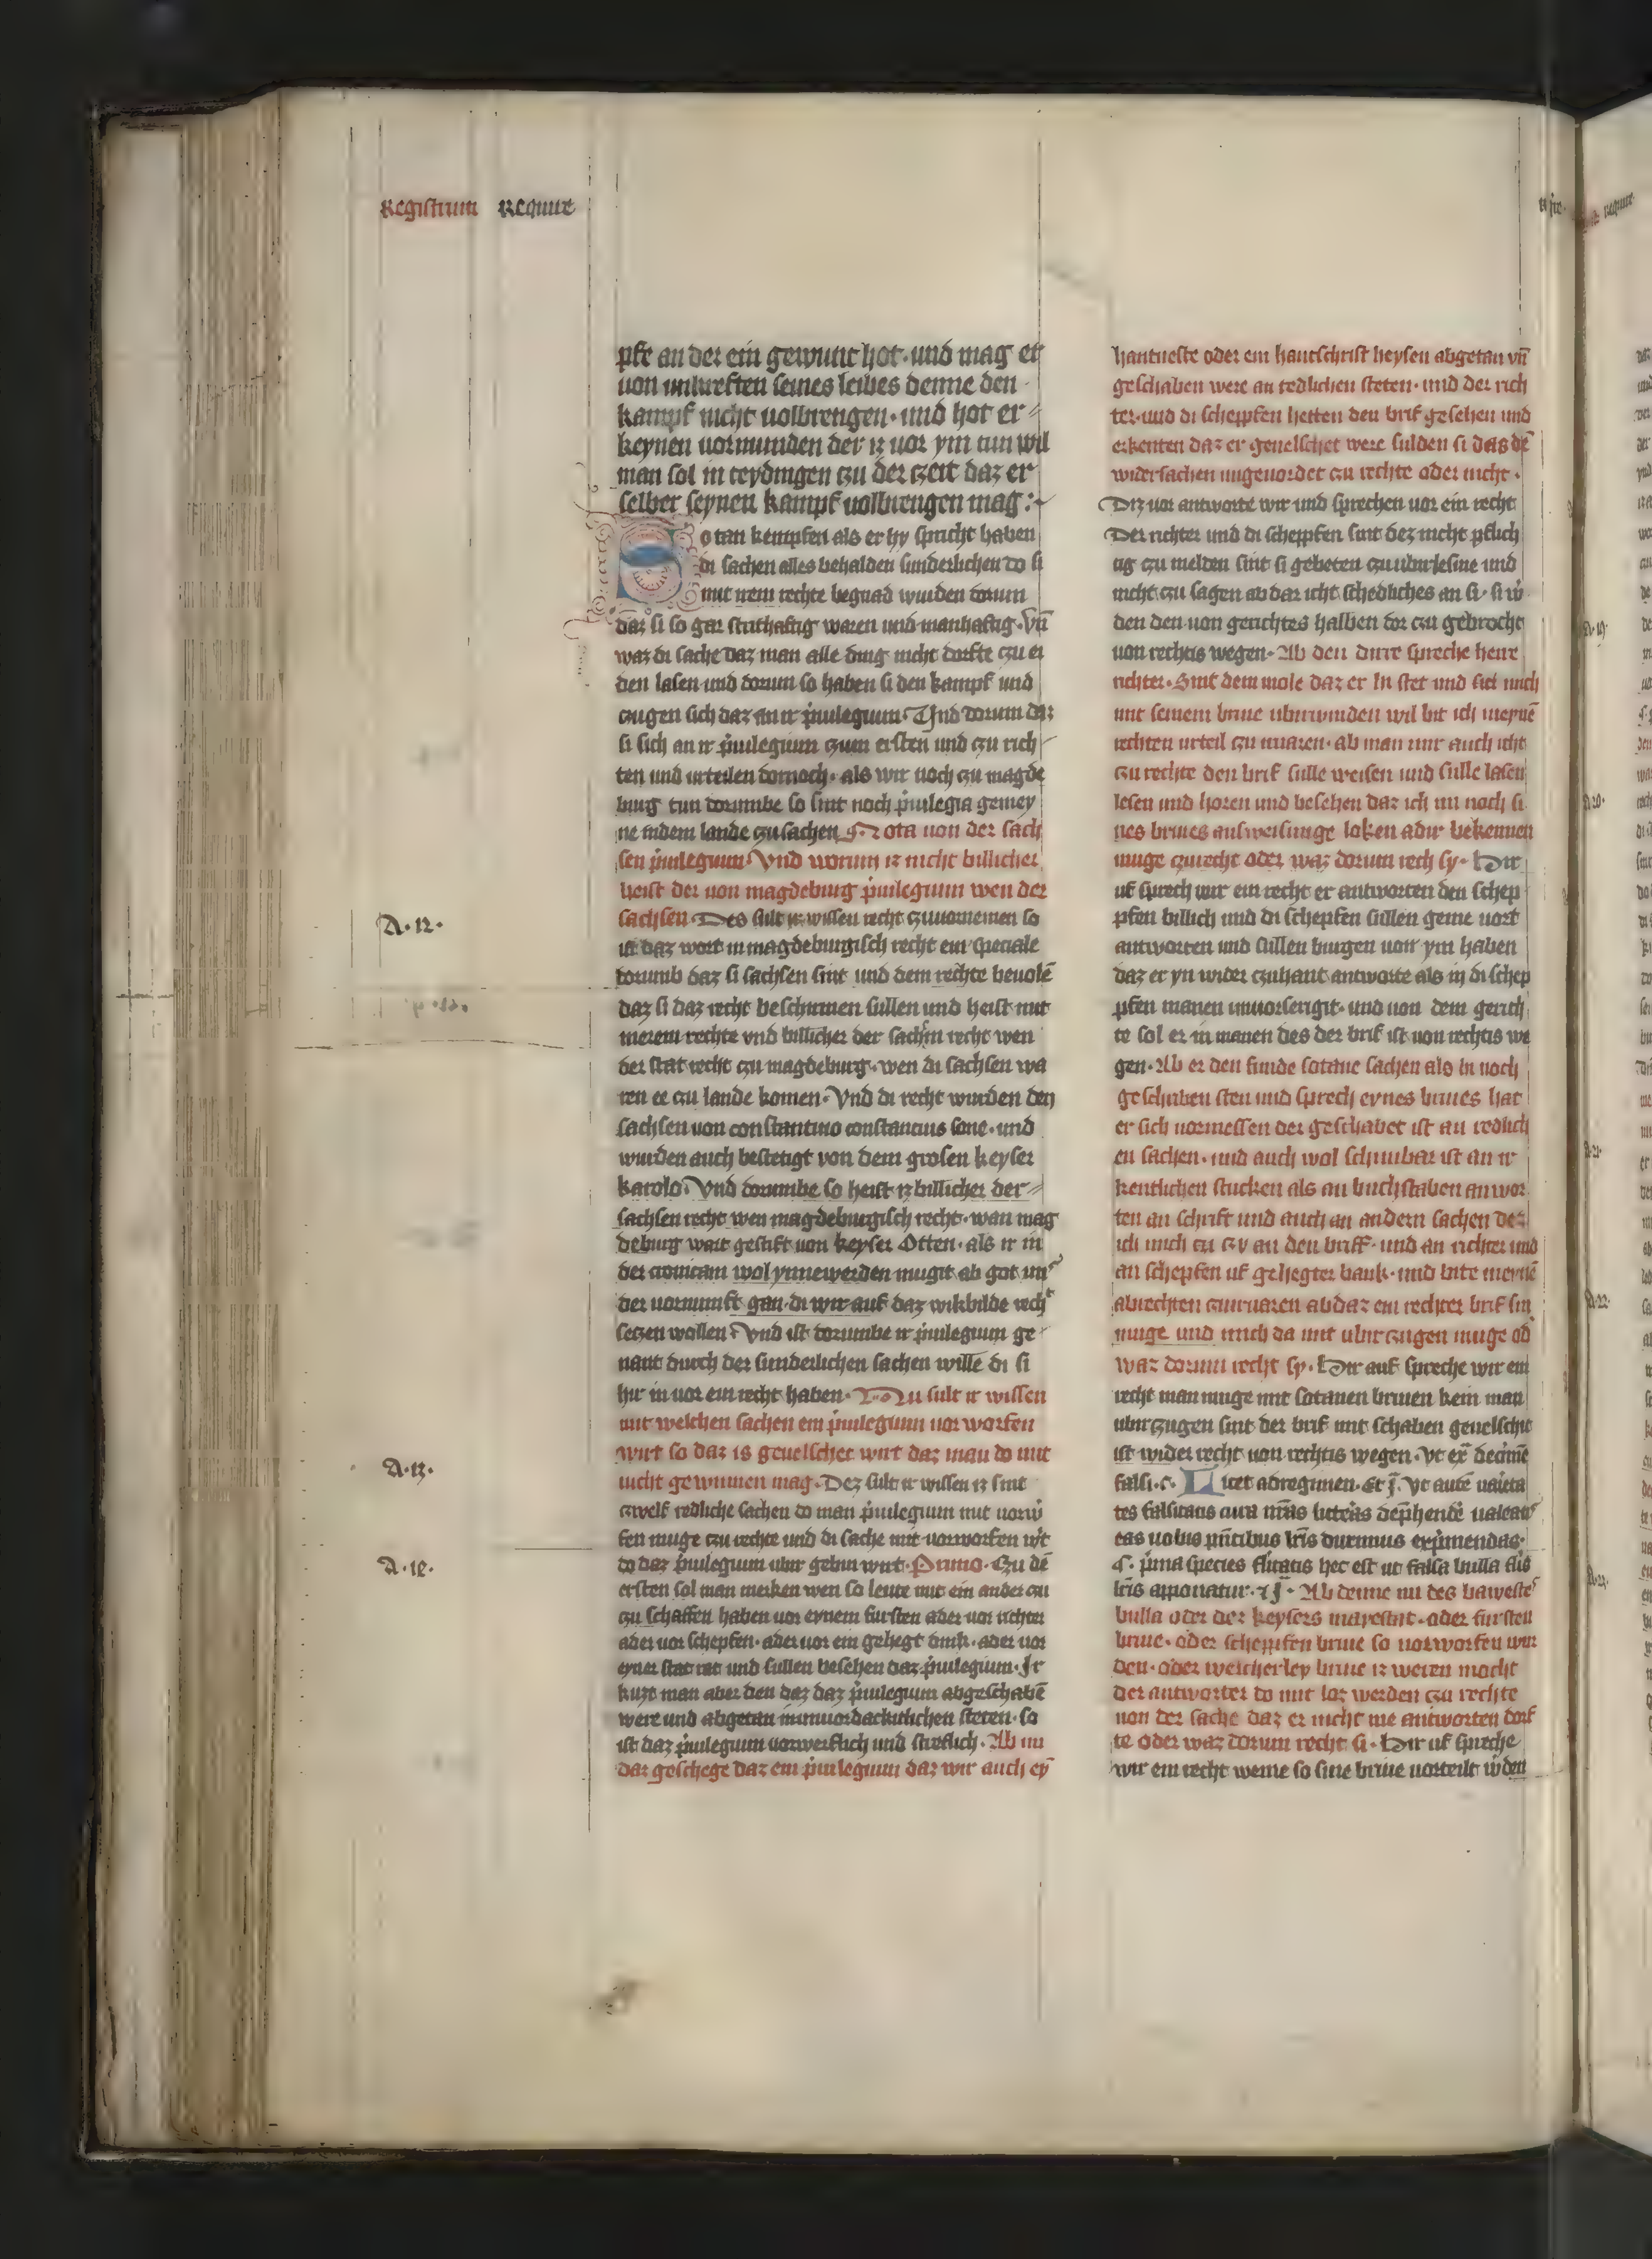 Registrum Require
pfe an der ein gewunt hot · und mag er
von unkreften seines leibes denne den
kampf nicht volbrengen · und hot er
keynen vormunden der iz vor ym tun wil
man sol in teydingen czu der czeit daz er
selber seynen kampf volbrengen mag :
Sotan kempfen als er hy spricht haben
di sachen alles behalden sunderlichen do si
mit irem rechte begnad wurden dorum
daz si so gar strithaftig waren und manhaftig · Vn̄
waz di sache daz man alle ding nicht dorfte czu ei
den lasen und dorum so haben si den kampf und
czugen sich daz an ir p̓uilegium · Und dorum daz
si sich an ir p̓uilegium czum ersten und czu rich
ten und urteilen dornoch · als wir noch czu magde
burg tun dorumbe so sint noch p̓uilegia gemey
ne indem lande czu sachen Nota von der sach
sen p̓uilegium · Vnd worum iz nicht billicher
heist der von magdeburg p̓uilegium wen der
sachsen · Des sult ir wissen recht czuuornemen so
ist daz wort in magdeburgisch recht ein speciale
dorumb daz si sachsen sint und dem rechte beuolē
daz si daz recht beschirmen sullen und heist mit
merem rechte vnd billicher der sachsin recht wen
der stat recht czu magdeburg · wen di sachsen wa
ren ee czu lande komen · Vnd di recht wurden den
sachsen von constantino constancius sone · und
wurden auch bestetigt von dem grosen keyser
karolo · Vnd dorumbe so heist iz billicher der
sachsen recht wen magdeburgisch recht · wan mag
deburg wart gestift von keyser Otten · als ir in
der cronicam wol ynnewerden mugit ab got im
der vornunft gan · di wir auf daz wikbilde rech
seczen wollen · Vnd ist dorumbe ir p̓uilegium ge
nant durch der sunderlichen sachen wille di si
hir in vor ein recht haben · Nu sult ir wissen
mit welchen sachen ein p̓uilegium vor worfen
wirt so daz is geuelschet wirt daz man do mit
nicht gewinnen mag · Dez sult ir wissen iz sint
czwelf redliche sachen do man p̓uilegium mit
fen muge czu rechte und di sache mit vorworfen
do daz p̓uilegium ubir gebin wirt · Primo · Czu dē
ersten sol man merken wen so leute mit ein ander czu
czu schaffen haben vor eynem fursten ader vor richter
ader vor schepfen · ader vor ein gehegt dink · ader vor
eyner stat rat und sullen besehen daz p̓uilegium · Ir
kuzt man aber den daz daz p̓uilegium abgeschabē
were und abgetan steten · so
ist daz p̓uilegium vorwerflich und streflich · Ab nu
daz geschege daz ein p̓uilegium daz wir auch ey
A · 12 ·
A · 13 ·
A · 18 ·
hantueste oder ein hantschrift heysen abgetan vn̄
geschaben were an redlichen steten · und der rich
ter · und di scheppfen hetten den brif gesehen und
erkenten daz er geuelschet were sulden si das dē
widersachen ungeuordet czu rechte oder nicht ·
Diz vor antworte wir und sprechen vor ein recht
Der richter und di scheppfen sint dez nicht pflich
tig czu melden sint si gebeten czu ubirlesine und
nicht czu sagen ab dar icht schedliches an si · si
den den von gerichtes halben dor czu gebrocht
von rechtis wegen · Ab den dirre spreche herre
richter · Sint dem mole daz er In stet und sich mich
mit seinem briue ubirwinden wil bit ich meynē
rechten urteil czu uraren · ab man mir auch icht
czu rechte den brif sulle weisen und sulle lasen
lesen und horen und besehen daz ich nu noch si
nes briues ausweisunge loken adir bekennen
muge czu recht oder waz dorum rech sy · Hir
uf sprech wir ein recht er antworten den schep
pfen billich und di schepfen sullen gerne vort
antworten und sullen burgen von ym haben
daz er yn wider czuhant antworte als in di schep
pfen manen unuorsengit · und von dem gerich
te sol er in manen des der brif ist von rechtis we
gen · Ab er den funde sotane sachen als hi noch
geschriben sten und sprech eynes briues hat
er sich vormessen der geschabet ist an redlich
en sachen · und auch wol schinbar ist an ir
kentlichen stucken als an buchstaben an wor
ten an schrift und auch an andern sachen dez
ich mich cu czy an den briff · und an richter und
an schepfen uf gehegter bank · und bite meynē
abrechten czu ab daz ein rechter brif sin
muge und mich da mit ubir czugen muge od̄
waz dorum recht sy · Hir auf spreche wir ein
recht man muge mit sotanen briuen kein man
ubirczugen sint der brif mit schaben geuelschit
ist wider recht von rechtis wegen · Vt ex̄ decrime
falsi · c · Licet adregimen · Et
tes falsitatis circa n̄ras litteras dep̄hendē ualeatis
eas uobis p̄ntibus lr̄is duximus exp̓mendas ·
p̓ma species hec est ut falsa bulla
lr̄is apponatur · Ab denne nu des baweste
bulla oder dez keysers mayestat · oder fursten
briue · oder schepfen briue so vorworfen wur
den · oder welcherley briue iz weren mocht
der antworter do mit loz werden czu rechte
von der sache daz er nicht me antworten dorf
te oder waz dorum recht si · Hir uf spreche
wir ein recht wenne so sine briue vorteilt